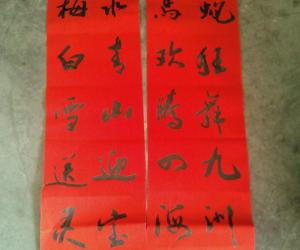 蛇狂舞九洲
馬欢腾四海
水青山迎宝
梅白雪送灵